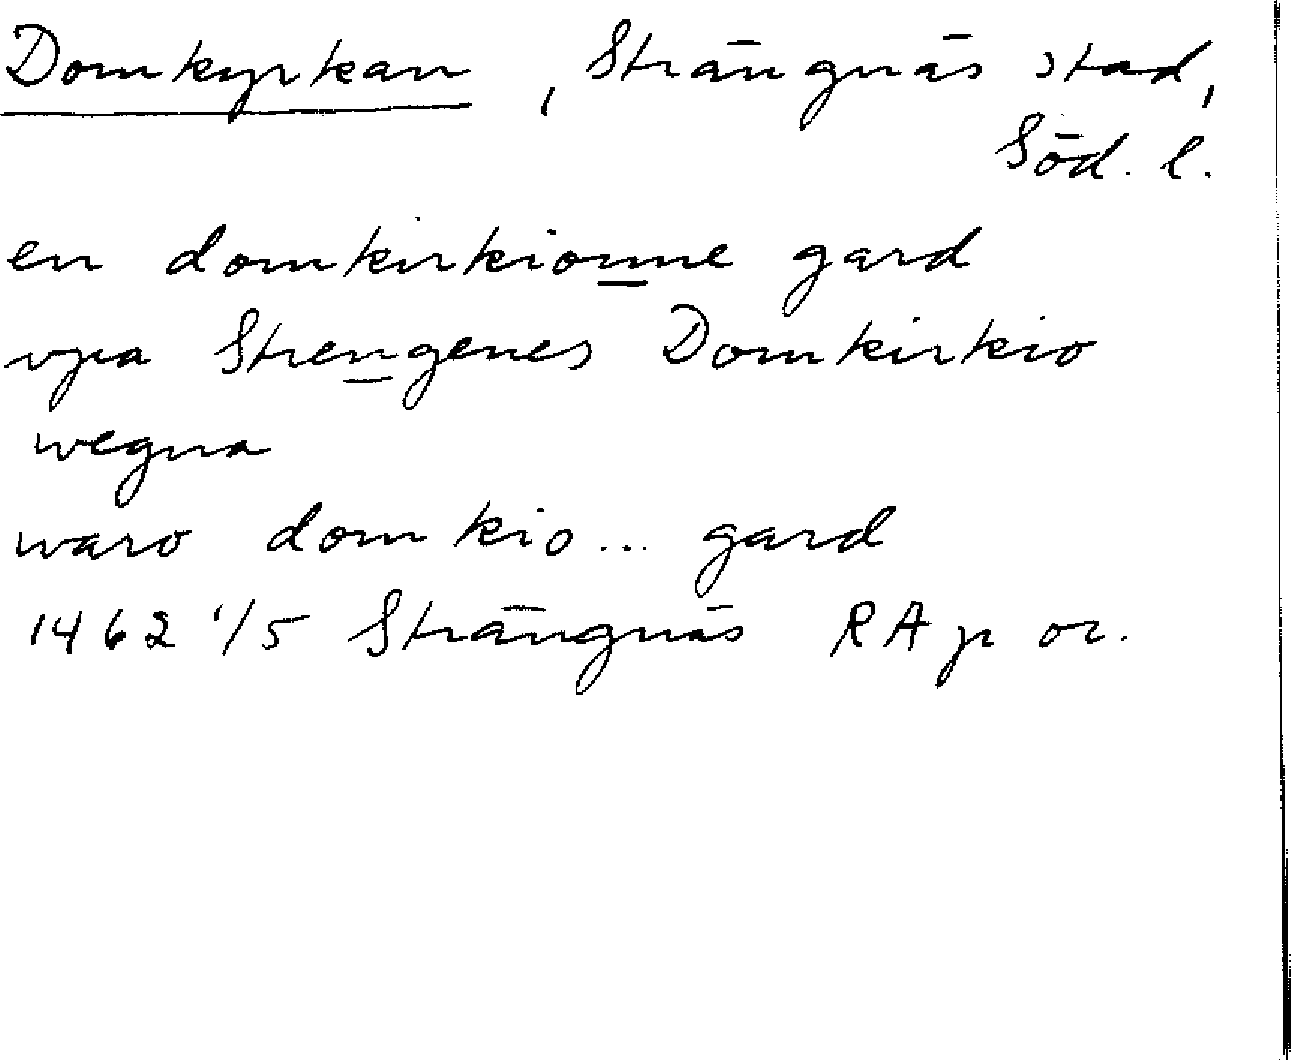 Domkyrkan, Strängnäs stad,
Söd. l.
en domkirkionne gard
vpa Strengenes Domkirkio
wegna
waro domkio... gard
1462 1/5 Strängnäs RA p or.